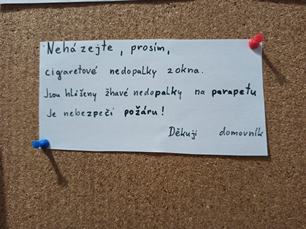 Neházejte, prosím,
cigaretové nedopalky z okna.
Jsou hlášeny žhavé nedopalky na parapetu
Je nebezpečí požáru!
Děkuji domovník